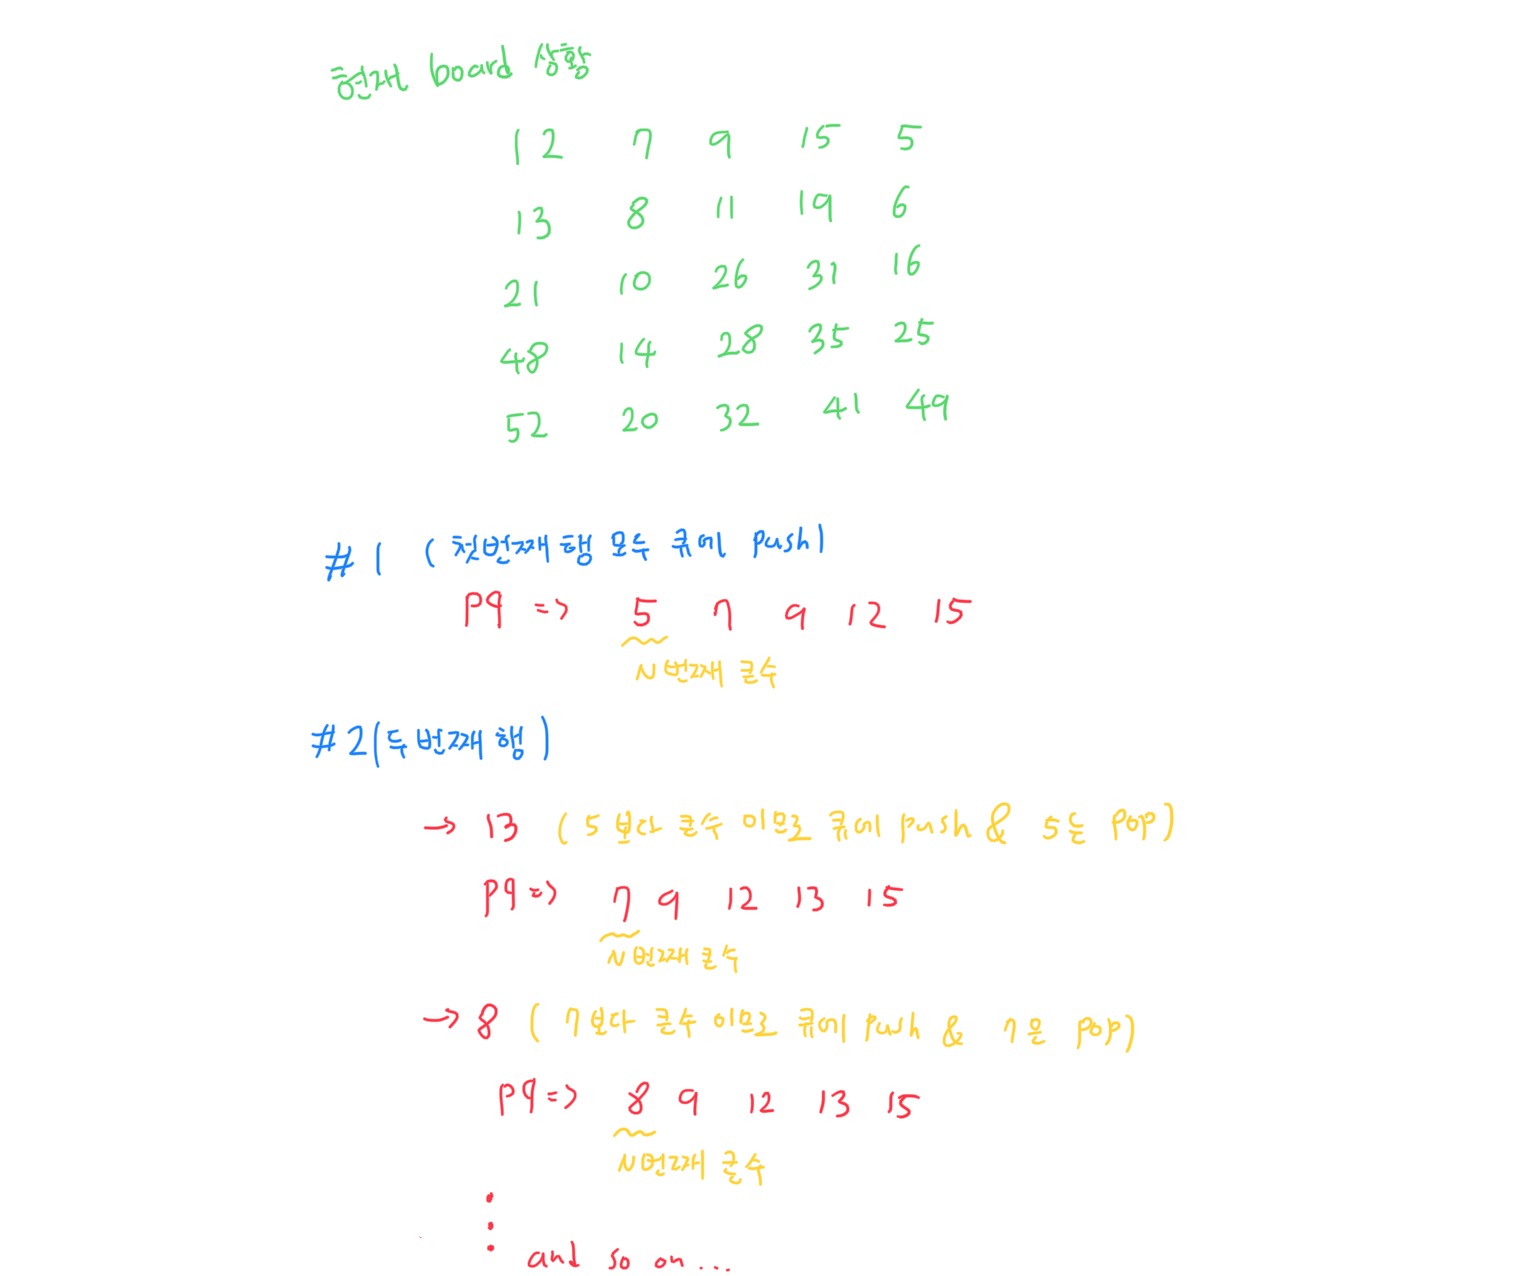 현재 board 상황
12 7 9 15 5
13 8 11 19 6
21 10 26 31 16
48 14 28 35 25
52 20 32 41 49
#1 (첫번째 행 모두 큐에 push)
pq => 5 7 9 12 15
N번째 큰수
#2(두번째 행)
→ 13 (5보다 큰수 이므로 큐에 push & 5는 pop)
pq => 7 9 12 13 15
N번째 큰수
→ 8 (7보다 큰수 이므로 큐에 push & 7은 pop)
pq => 8 9 12 13 15
N번째 큰수
and so on...